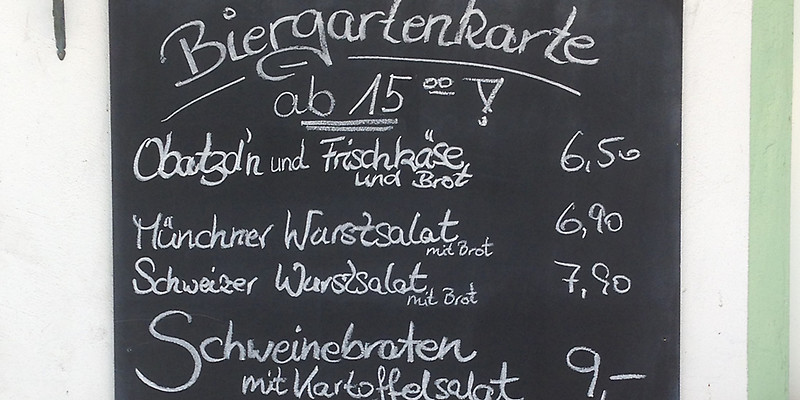 Biergartenkarte
ab 15 00 !
Obatzd'n und Frischkäse 6,50
und Brot
Münchner Wurstsalat 6,90
mit Brot
Schweizer Wurstsalat 7,90
mit Brot
Schweinebraten
mit Kartoffelsalat 9,-